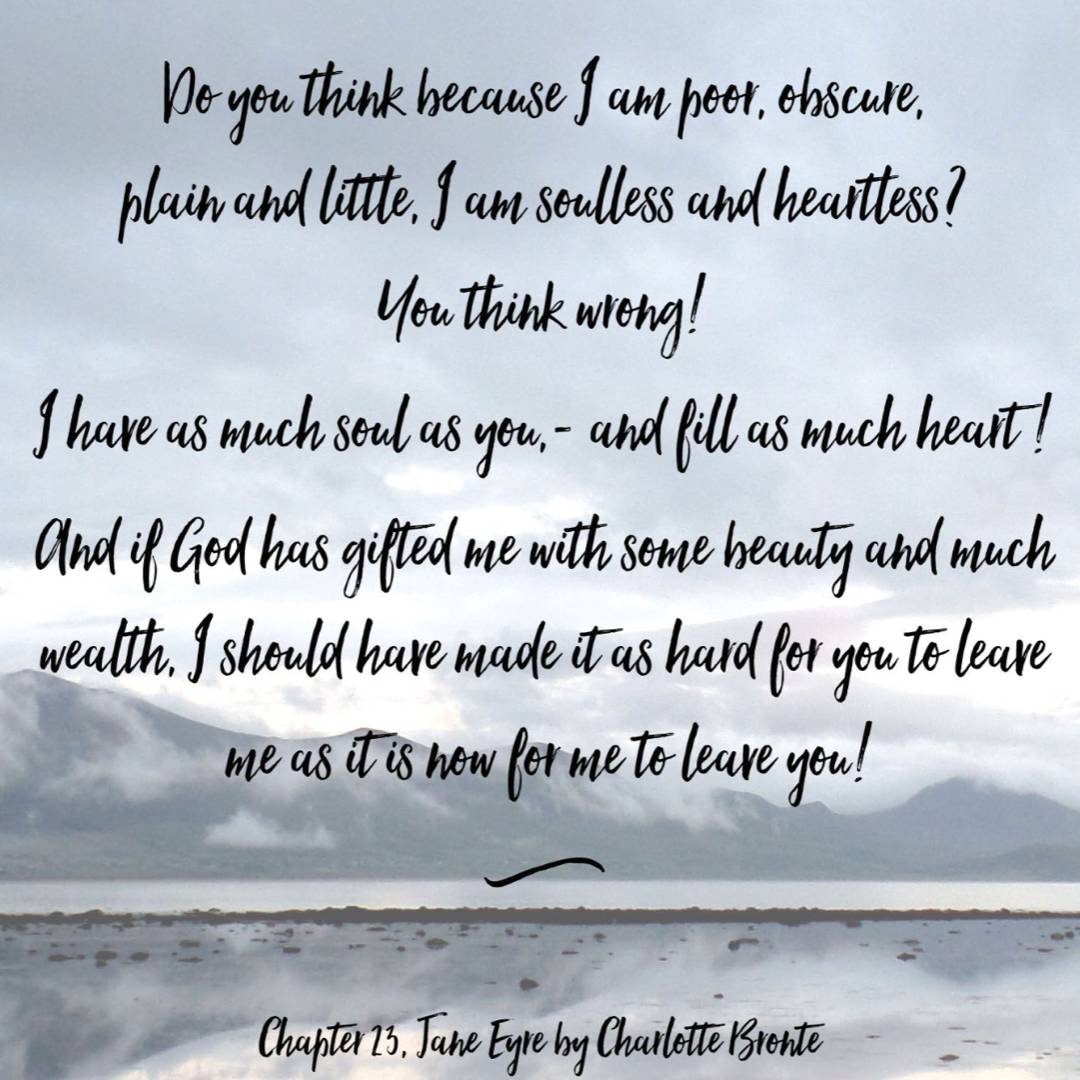 Do you think because I am poor, obscure,
plain and little, I am soulless and heartless?
You think wrong!
I have as much soul as you,- and fill as much heart!
And if God has gifted me with some beauty and much
wealth, I should have made it as hard for you to leave
me as it is now for me to leave you!
Chapter 23, Jane Eyre by Charlotte Bronte